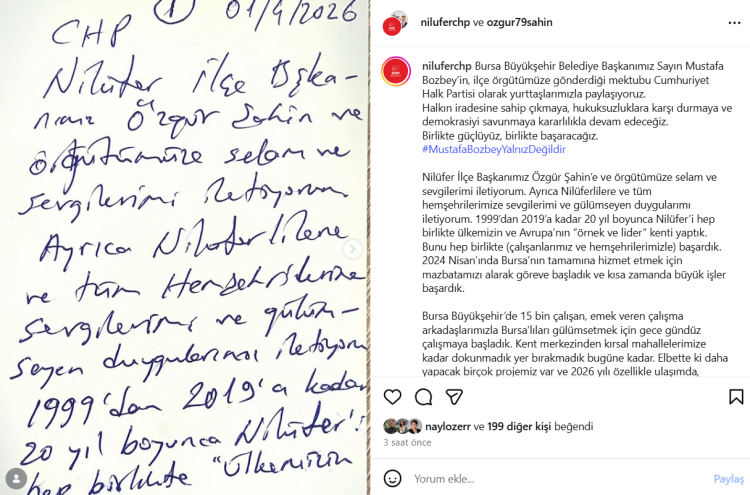 1 01/4/2026
CHP
Nilüfer İlçe Bşka-
nımız Özgür Şahin ve
örgütümüze selam ve
sevgilerimi iletiyorum
Ayrıca Nilüferlilere
ve tüm Hemşehrilerime
sevgilerimi ve gülüm-
seyen duygularımı iletiyorum
1999'dan 2019'a kadar
20 yıl boyunca Nilüfer'i
hep birlikte "Ülkemizin
niluferchp ve ozgur79sahin
niluferchp Bursa Büyükşehir Belediye Başkanımız Sayın Mustafa
Bozbey'in, ilçe örgütümüze gönderdiği mektubu Cumhuriyet
Halk Partisi olarak yurttaşlarımızla paylaşıyoruz.
Halkın iradesine sahip çıkmaya, hukuksuzluklara karşı durmaya ve
demokrasiyi savunmaya kararlılıkla devam edeceğiz.
Birlikte güçlüyüz, birlikte başaracağız.
#MustafaBozbeyYalnızDeğildir
Nilüfer İlçe Başkanımız Özgür Şahin'e ve örgütümüze selam ve
sevgilerimi iletiyorum. Ayrıca Nilüferlilere ve tüm
hemşehrilerimize sevgilerimi ve gülümseyen duygularımı
iletiyorum. 1999'dan 2019'a kadar 20 yıl boyunca Nilüfer'i hep
birlikte ülkemizin ve Avrupa'nın "örnek ve lider" kenti yaptık.
Bunu hep birlikte (çalışanlarımız ve hemşehrilerimizle) başardık.
2024 Nisan'ında Bursa'nın tamamına hizmet etmek için
mazbatamızı alarak göreve başladık ve kısa zamanda büyük işler
başardık.
Bursa Büyükşehir'de 15 bin çalışan, emek veren çalışma
arkadaşlarımızla Bursa'lıları gülümsetmek için gece gündüz
çalışmaya başladık. Kent merkezinden kırsal mahallelerimize
kadar dokunmadık yer bırakmadık bugüne kadar. Elbette ki daha
yapacak birçok projemiz var ve 2026 yılı özellikle ulaşımda,
naylozerr ve 199 diğer kişi beğendi
3 saat önce
Yorum ekle...
Paylaş